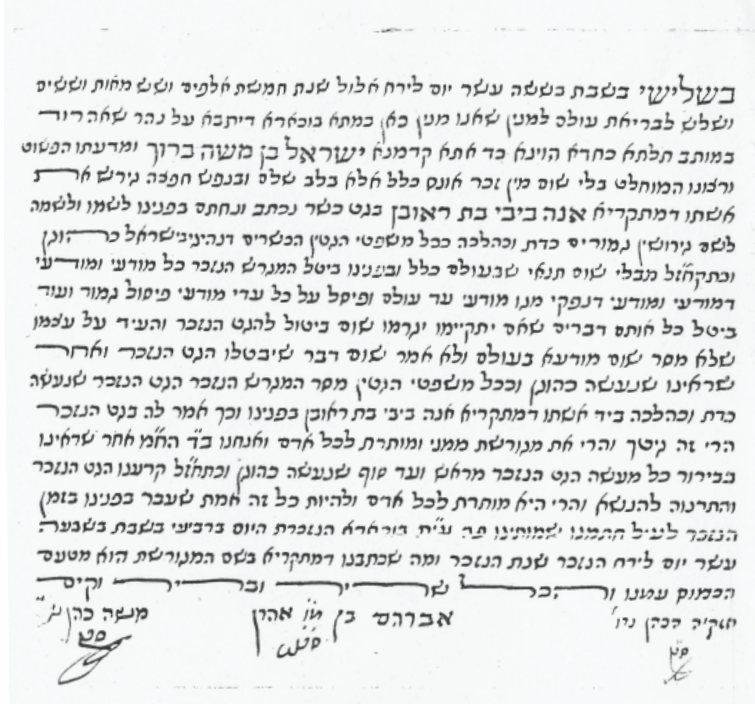 בשלישי בשבת בששה עשר יום לירח אלול שנת חמשת אלפים ושש מאות וששים
ושלש לבריאת עולם למנין שאנו מנין כאן במתא בוכארא דיתבא על נהר שאה רוד
במותב תלתא כחדא הוינא כד אתא קדמנא ישראל בן משה ברוך ומדעתו הפשוט
ורצונו המוחלט בלי שום מין זכר אונס כלל אלא בלב שלם ובנפש חפצה גירש את
אשתו דמתקריא אנה ביבי בת ראובן בגט כשר נכתב ונחתם בפנינו לשמו ולשמה
לשם גירושין גמורים כדת וכהלכה ככל משפטי הגטין הכשרים בישראל כהוגן
וכתקחז"ל מבלי שום תנאי שבעולם כלל ובפנינו ביטל המגרש הנזכר כל מודעי ומודעי
דמודעי ומודעי דנפקי מגו מודעי עד עולם ופיסל על כל עדי מודעי פיסול גמור ועוד
ביטל כל אותם דברים שאם יתקיימו יגרמו שום ביטול להגט הנזכר והעיד על עצמו
שלא מסר שום מודעא בעולם ולא אמר שום דבר שיבטלו הגט הנזכר ואחר
שראינו שנעשה כהוגן וככל משפטי הגטין מסר המגרש הנזכר הגט הנזכר שנעשה
כדת וכהלכה ביד אשתו דמתקריא אנה ביבי בת ראובן בפנינו וכך אמר לה בגט הנזכר
הרי זה גיטך והרי את מגורשת ממני ומותרת לכל אדם ואנחנו ב"ד הח"מ אחר שראינו
בבירור כל מעשה הגט הנזכר מראש ועד סוף שנעשה כהוגן וכתחז"ל קרענו הגט הנזכר
והתרנוה להנשא והרי היא מותרת לכל אדם ולהיות כל זה אמת שעבר בפנינו בזמן
הנזכר לעיל חתמנו שמותינו פה בוכארא הנזכרת היום ברביעי בשבת בשבעה
עשר יום לירח הנזכר שנת הנזכר ומה שכתבנו דמתקריא בשם המגורשת הוא מטעם
הכמוס עמנו והכל שריר ובריר וקים
חזקיה הכהן אברהם בן אהרן משה כהן
ס"ט ס"ט ס"ט